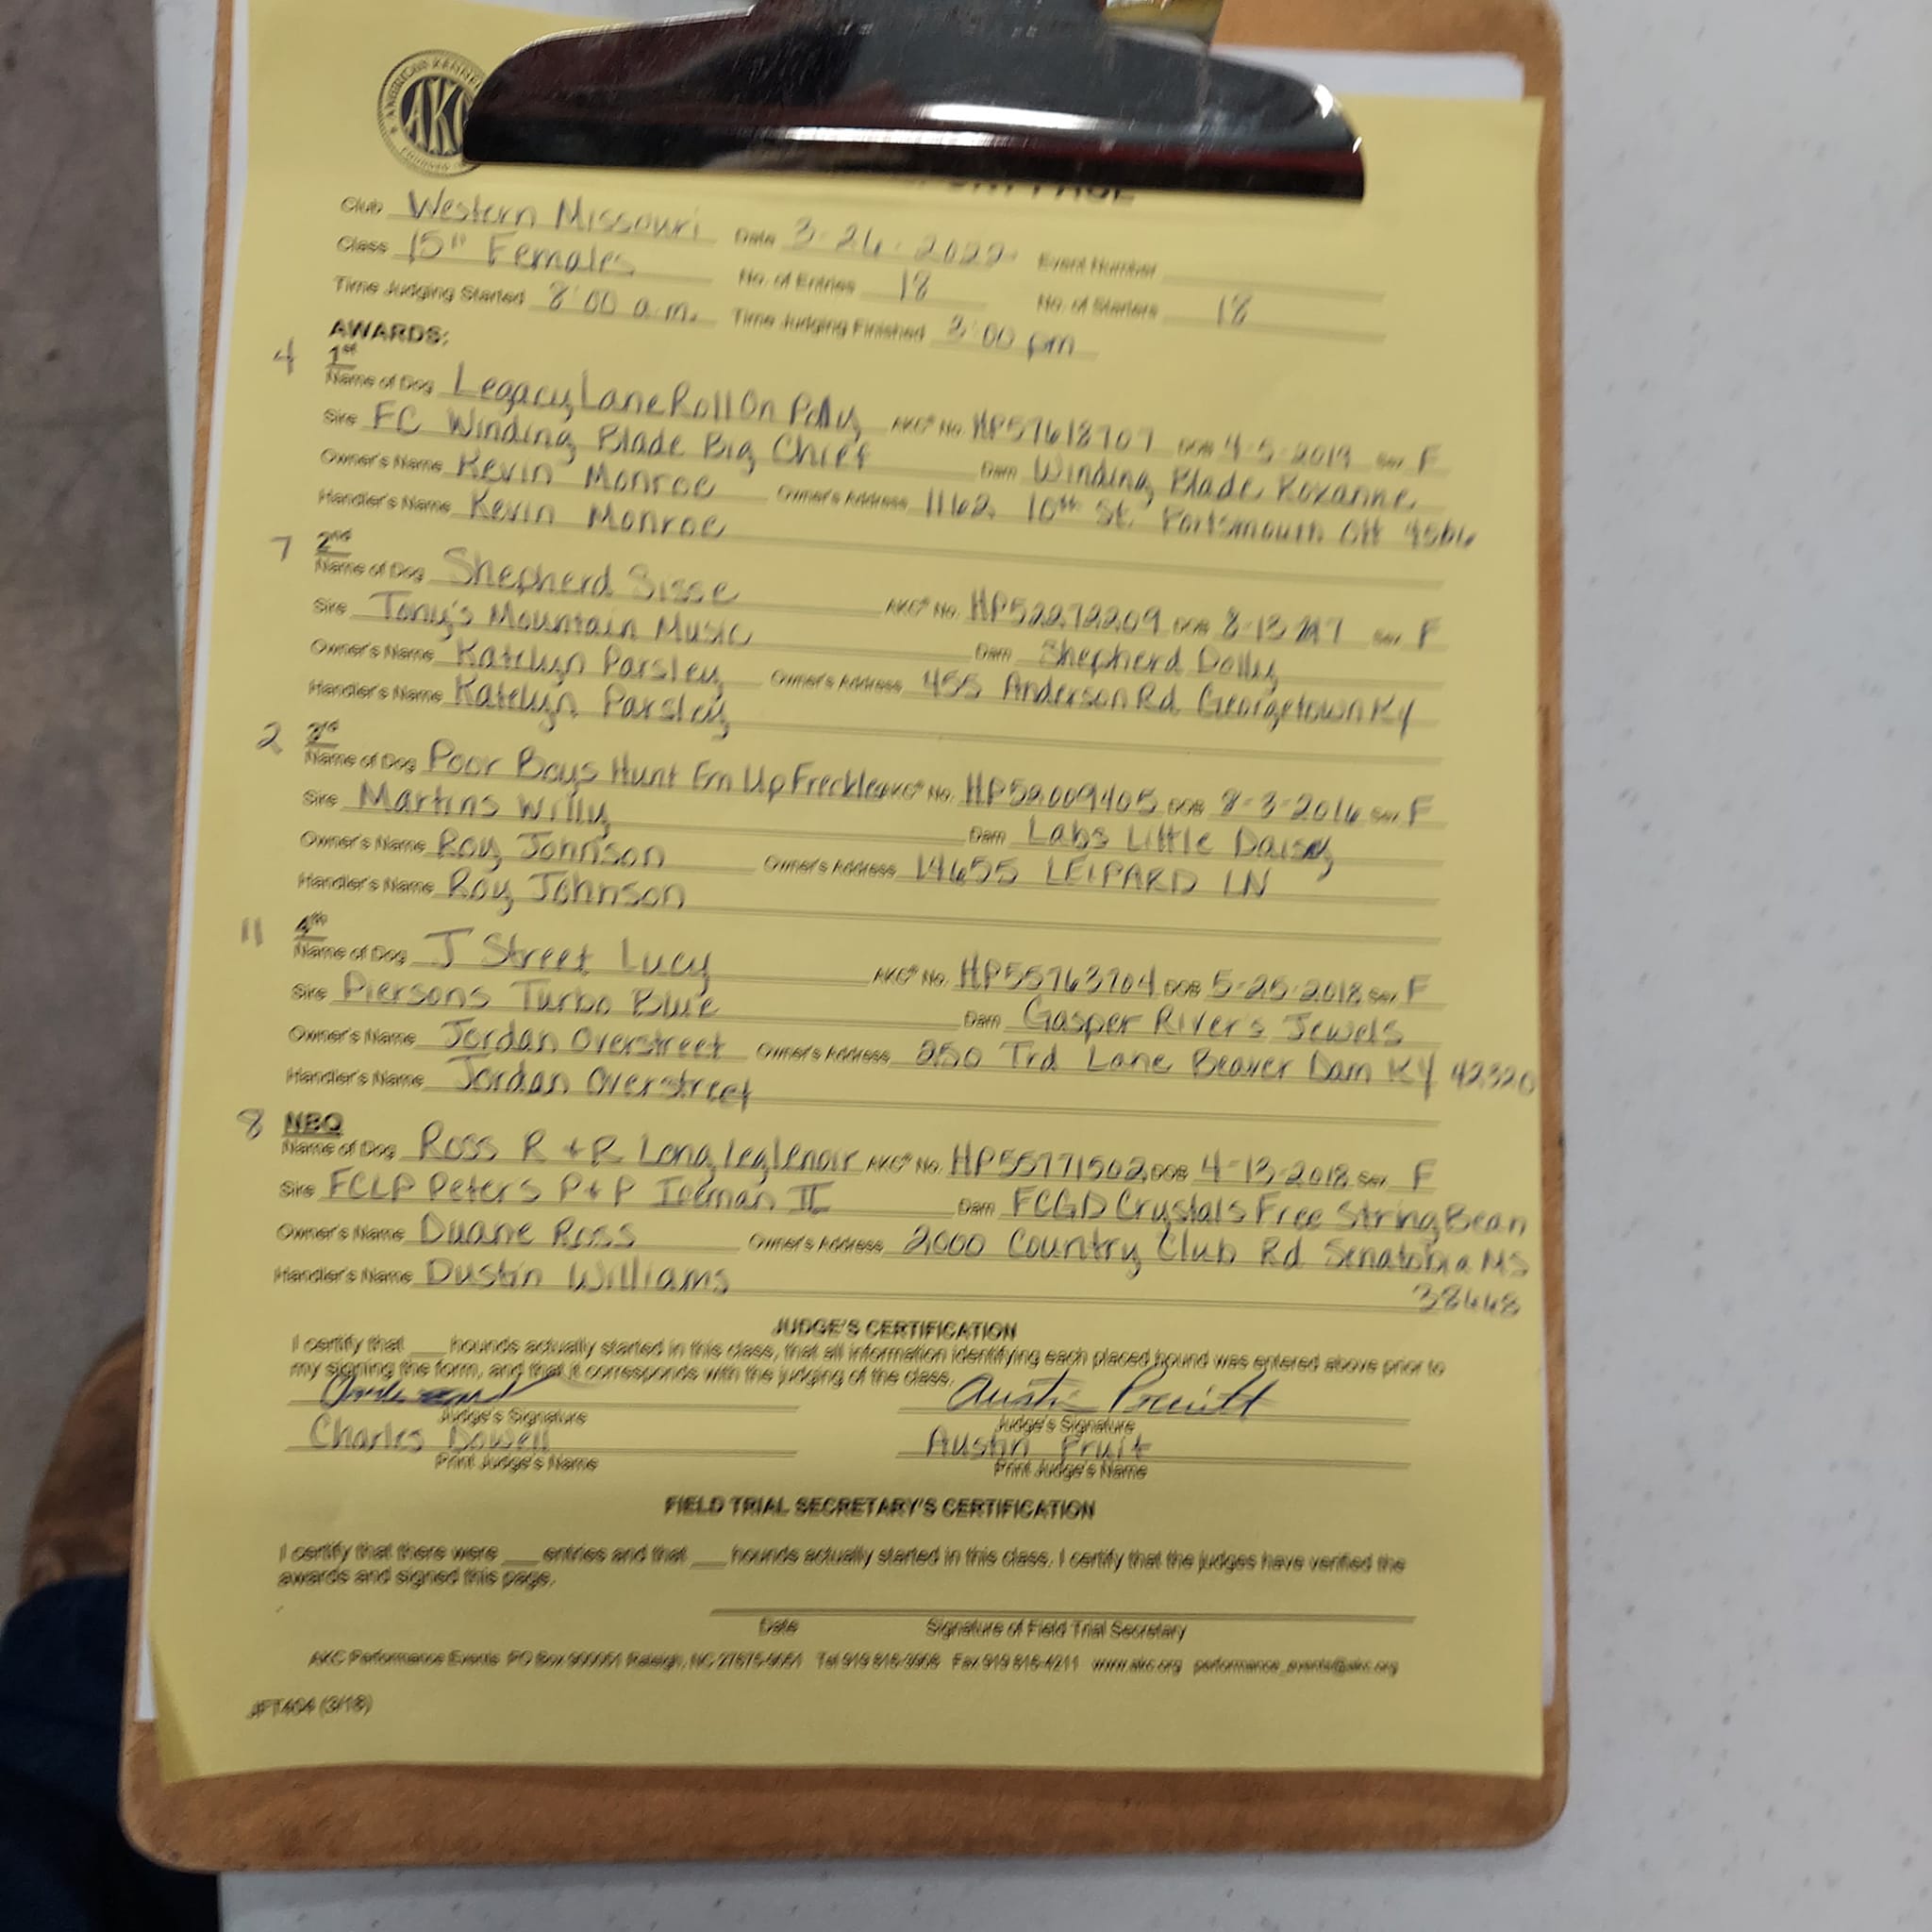 AKC
Club Western Missouri Date 3-26-2022 Event Number
Class 15" Females No. of Entries 18 No. of Starters 18
Time Judging Started 8:00 a.m. Time Judging Finished 3:00 pm
AWARDS:
4 1st
Name of Dog Legacy Lane Roll On Polly AKC® No. HP57618707 DOB 4-5-2019 Sex F
Sire FC Winding Blade Big Chief Dam Winding Blade Roxanne
Owner's Name Kevin Monroe Owner's Address 1162 10th St. Portsmouth OH
Handler's Name Kevin Monroe
7 2nd
Name of Dog Shepherd Sisse AKC® No. HP52272209 DOB Sex F
Sire Tony's Mountain Music Dam Shepherd Dolly
Owner's Name Katelyn Parsley Owner's Address 455 Anderson Rd Georgetown KY
Handler's Name Katelyn Parsley
2 3rd
Name of Dog Poor Boys Hunt Em Up Freckles AKC® No. HP52009405 DOB 8-3-2016 Sex F
Sire Martins Willy Dam Labs Little Daisy
Owner's Name Roy Johnson Owner's Address 14655 LEIPARD LN
Handler's Name Roy Johnson
11 4th
Name of Dog J Street Lucy AKC® No. HP55763704 DOB 5-25-2018 Sex F
Sire Piersons Turbo Blue Dam Gasper River's Jewels
Owner's Name Jordan Overstreet Owner's Address 250 Trd Lane Beaver Dam KY 42320
Handler's Name Jordan Overstreet
8 NBQ
Name of Dog Ross R + R Long Leg Lenoir AKC® No. HP55771502 DOB 4-13-2018 Sex F
Sire FCLP Peters P + P Iceman II Dam FCGD Crystals Free String Bean
Owner's Name Duane Ross Owner's Address 2000 Country Club Rd Senatobia MS
Handler's Name Dustin Williams 38668
JUDGE'S CERTIFICATION
I certify that ___ hounds actually started in this class, that all information identifying each placed hound was entered above prior to
my signing the form, and that it corresponds with the judging of the class.
Austin Pruitt
Judge's Signature Judge's Signature
Charles Dowell Austin Pruit
Print Judge's Name Print Judge's Name
FIELD TRIAL SECRETARY'S CERTIFICATION
I certify that there were ___ entries and that ___ hounds actually started in this class. I certify that the judges have verified the
awards and signed this page.
Date Signature of Field Trial Secretary
AKC Performance Events PO Box 900051 Raleigh, NC 27675-9051 Tel 919 816-3908 Fax 919 816-4211 www.akc.org performance_events@akc.org
JFT404 (3/18)